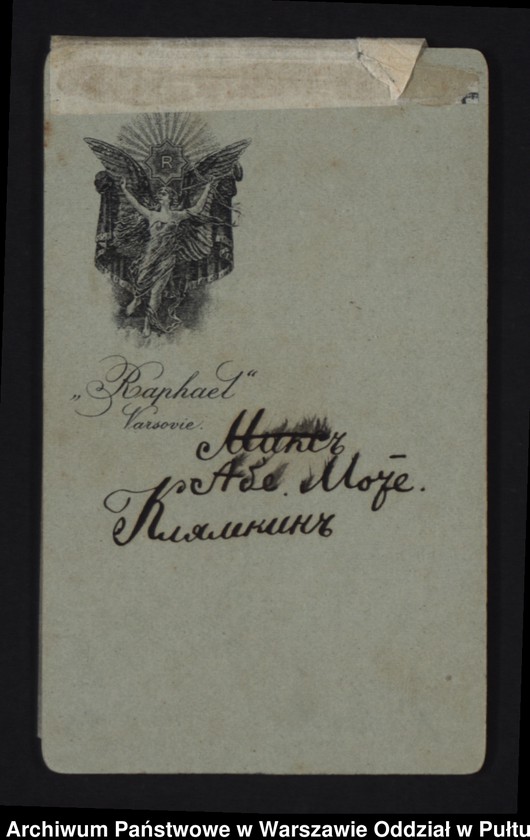 R
„Raphael“
Varsovie.
Абе. Mоце.
Клямкинъ
Archiwum Państwowe w Warszawie Oddział w Pułtu